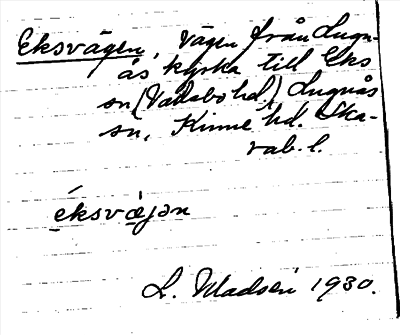 Eksvägen, Vägen från Lugn-
ås kyrka till Eks
sn (Vadsbo hd,) Lugnås
sn, Kinne hd. Ska-
rab. l.
éksvæ̀jən
L. Madsén 1930.